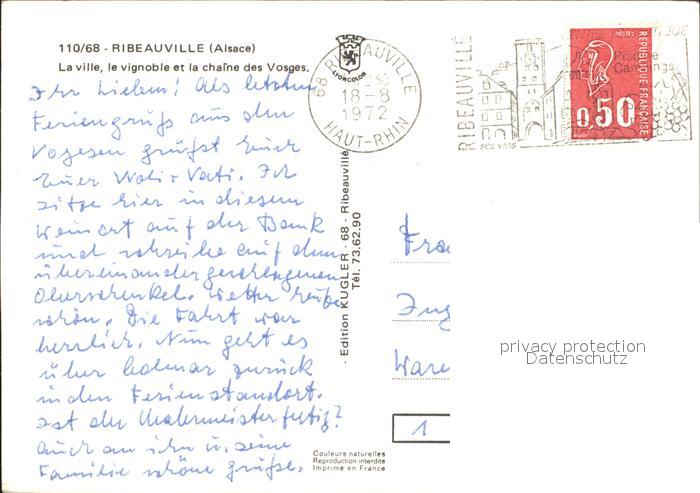 110/68 - RIBEAUVILLE (Alsace)
La ville, le vignoble et la chaîne des Vosges.
Ihr Lieben! Als letzten
Feriengruß aus den
Vogesen grüßt Euch
Euer Vati. Ich
sitze hier in diesem
Weinort auf der Bank
und schreibe auf dem
übereinandergeschlagenen
Oberschenkel. Wetter
schön. Die Fahrt war
herrlich. Nun geht es
über Colmar zurück
in den Ferienstandort.
Ist der Malermeister fertig?
Auch an ihn u. seine
Familie schöne Grüße.
LYONCOLOR
68 RIBEAUVILLE
18-8
1972
HAUT-RHIN
RIBEAUVILLÉ
ses vins
POSTES
REPUBLIQUE FRANÇAISE
0,50
- Edition KUGLER - 68 - Ribeauville
Tél. 73.62.90
Fra
Zug
Ware
1
privacy protection
Datenschutz
Couleurs naturelles
Reproduction interdite
Imprimé en France